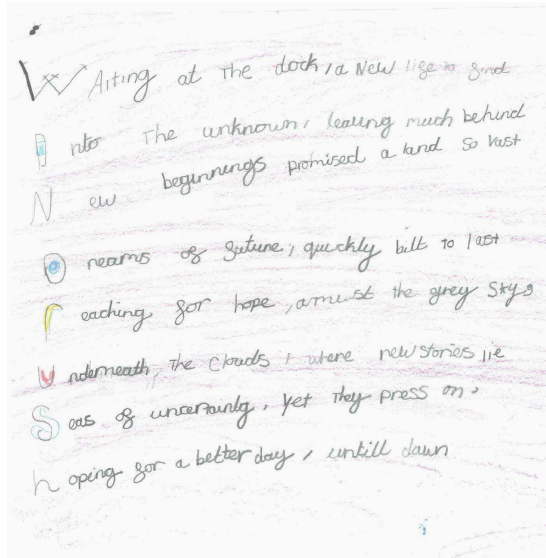 WAiting at the dock, a New life to find
Into The unknown, leaving much behind
New beginnings promised a land so vast
Dreams of future, quickly bilt to last
reaching for hope, amust the grey skys
Underneath, The Clouds, where new stories lie
Seas of uncertainty, yet They press on,
hoping for a better day, untill dawn